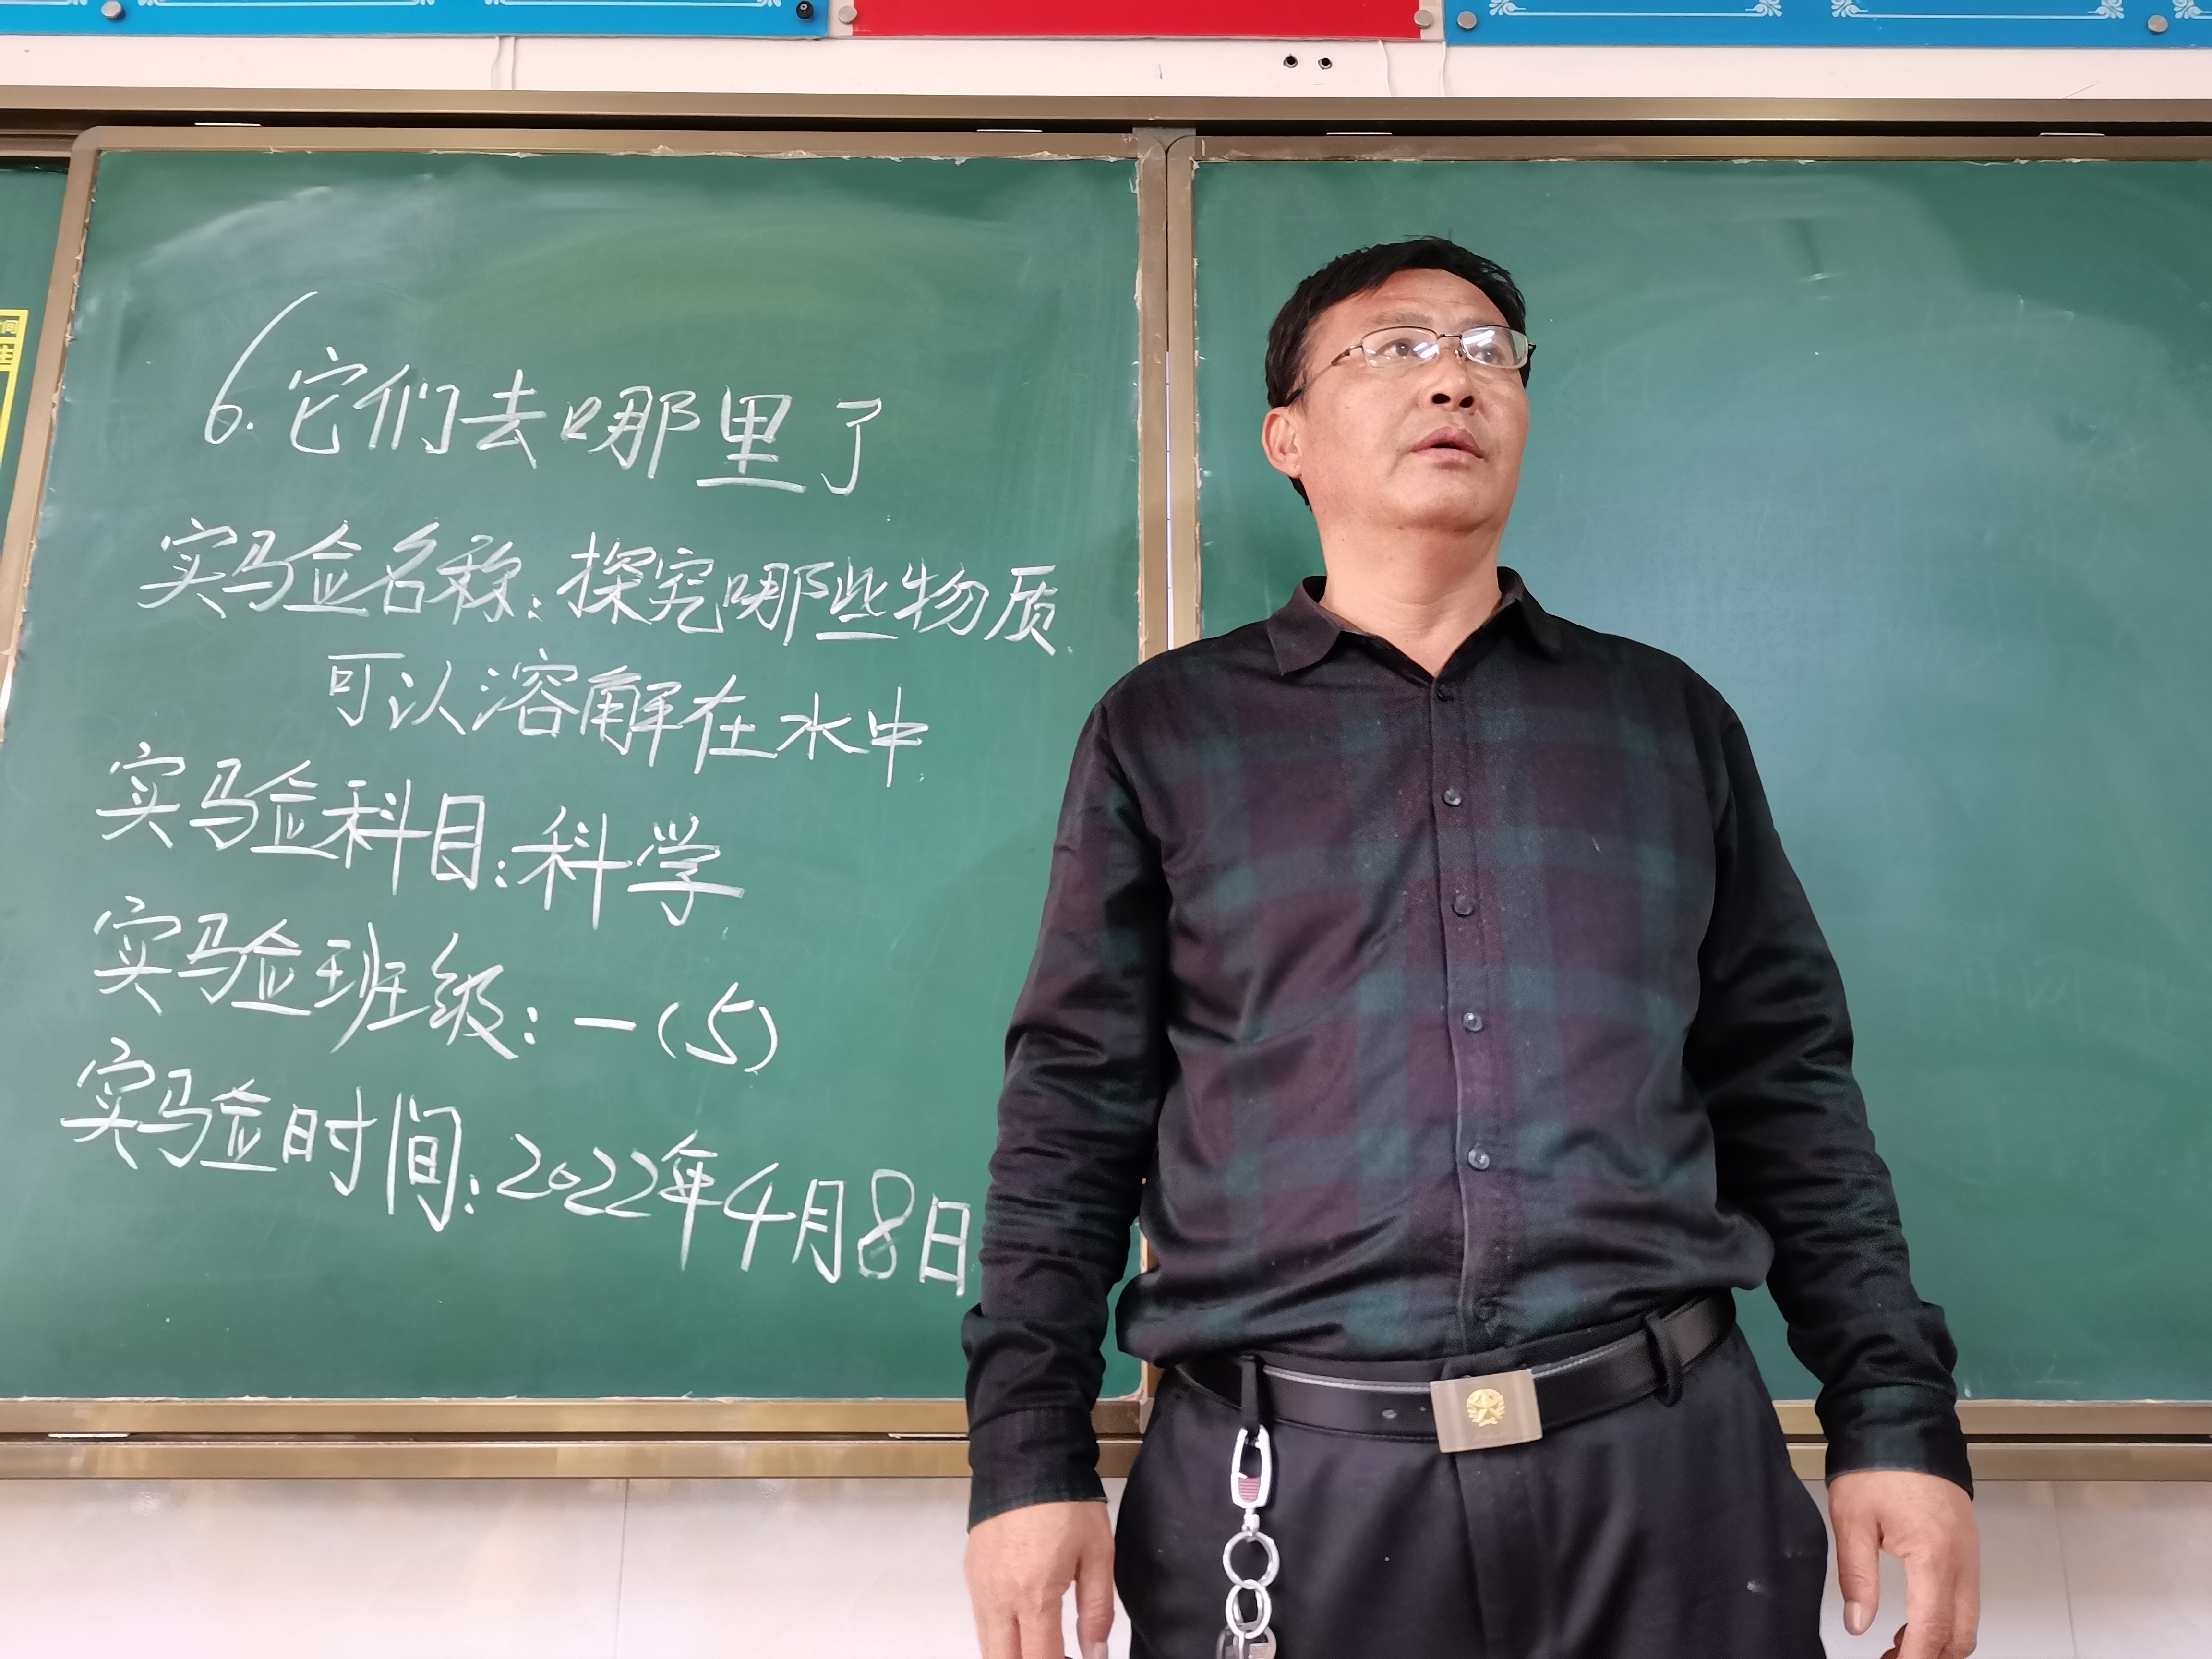 6.它们去哪里了
实验名称:探究哪些物质
可以溶解在水中
实验科目:科学
实验班级:一(5)
实验时间:2022年4月8日
间
生